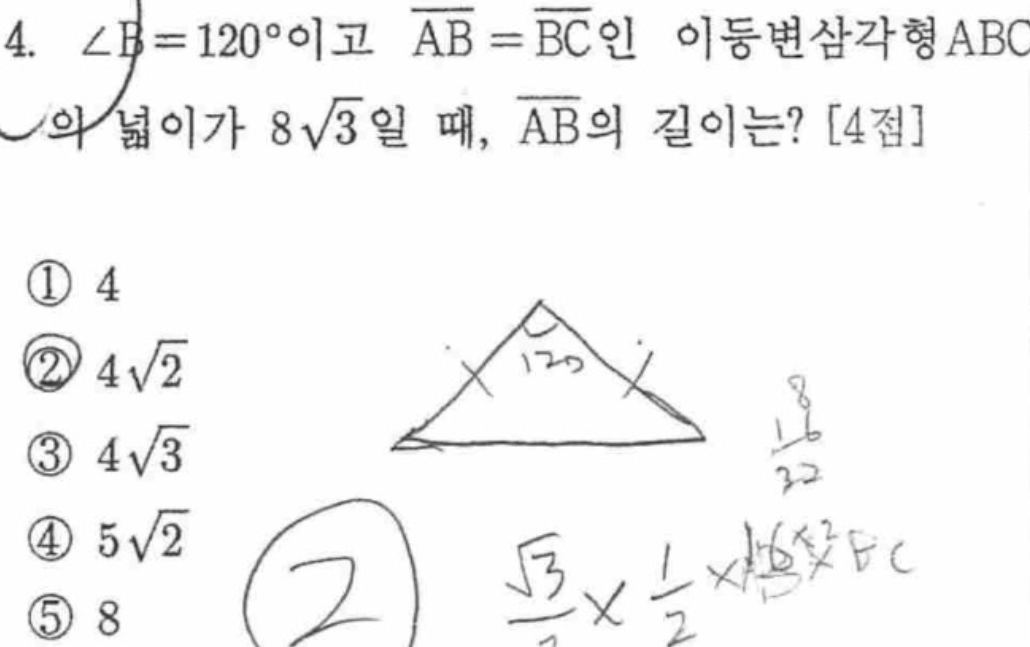 4. ∠B=120°이고 AB=BC인 이등변삼각형ABC
의 넓이가 8√3일 때, AB의 길이는? [4점]
① 4
② 4√2
③ 4√3
④ 5√2
⑤ 8
120
8
16
32
2
√3/2 × 1/2 ×
BC